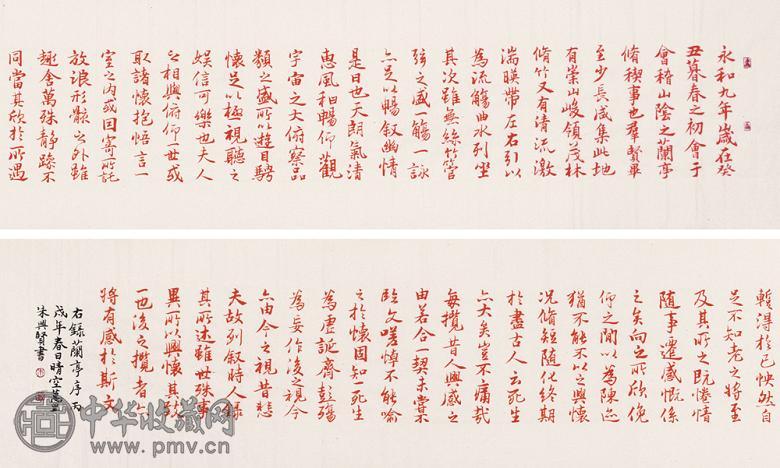 永和九年歲在癸
丑暮春之初會于
會稽山陰之蘭亭
脩稧事也羣賢畢
至少長咸集此地
有崇山峻領茂林
脩竹又有清流激
湍暎帶左右引以
為流觴曲水列坐
其次雖無絲竹管
弦之盛一觴一詠
亦足以暢叙幽情
是日也天朗氣清
恵風和暢仰觀
宇宙之大俯察品
類之盛所以遊目騁
懷足以極視聽之
娛信可樂也夫人
之相與俯仰一世或
取諸懷抱悟言一
室之內或因寄所託
放浪形骸之外雖
趣舍萬殊静躁不
同當其欣於所遇
暫得於己怏然自
足不知老之將至
及其所之既惓情
随事遷感慨係
之矣向之所欣俛
仰之閒以為陳迹
猶不能不以之興懷
況脩短随化終期
於盡古人云死生
亦大矣豈不痛哉
每攬昔人興感之
由若合一契未嘗
臨文嗟悼不能喻
之於懷固知一死生
為虛誕齊彭殤
為妄作後之視今
亦由今之視昔悲
夫故列叙時人錄
其所述雖世殊事
異所以興懷其致
一也後之攬者亦
將有感於斯文
右錄蘭亭序丙
戌年春日晴空萬里
朱興賢書
中华收藏网
www.pmv.cn